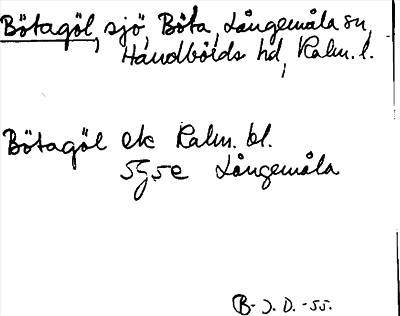 Bötagöl, sjö, Böta, Långemåla sn,
Handbörds hd, Kalm. l.
Bötagöl ek Kalm. bl.
5G5e Långemåla
B-J.D.-55.